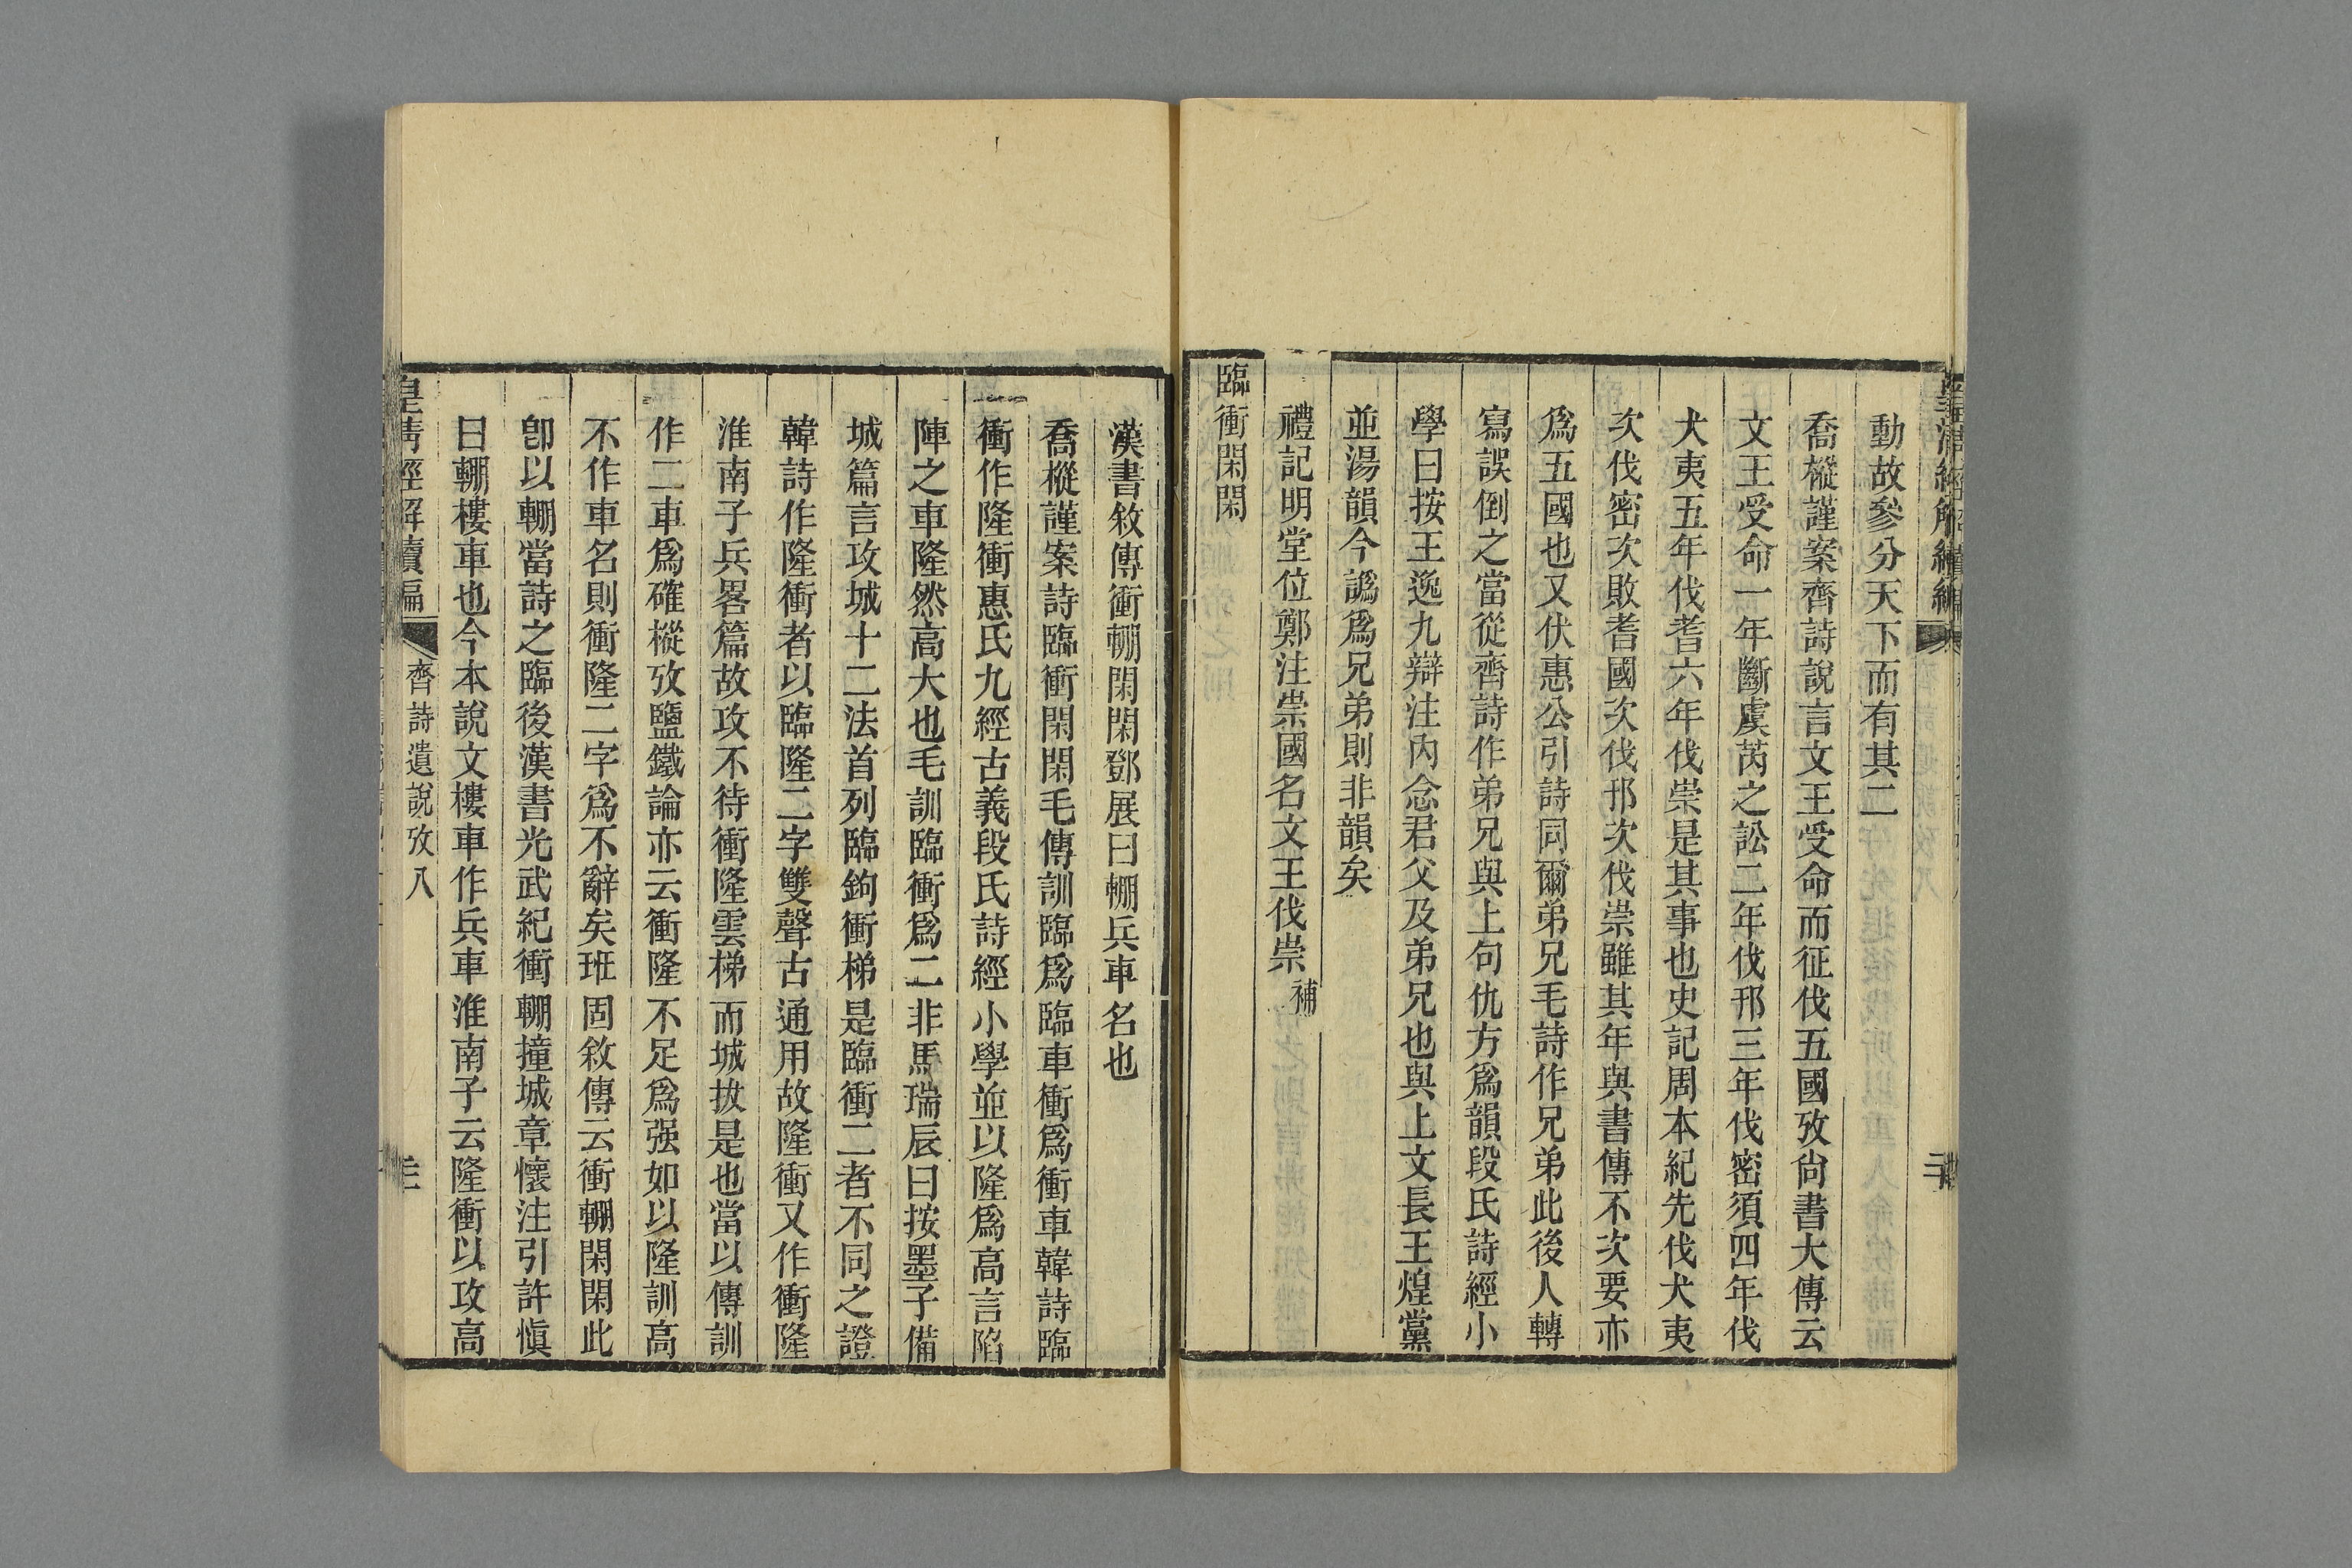 皇清經解續編
動故參分天下而有其二
喬樅謹案齊詩說言文王受命而征伐五國攷尙書大傳云
文王受命一年斷虞芮之訟二年伐邘三年伐密須四年伐
犬夷五年伐耆六年伐崇是其事也史記周本紀先伐犬夷
次伐密次敗耆國次伐邘次伐崇雖其年與書傳不次要亦
爲五國也又伏惠公引詩同爾弟兄毛詩作兄弟此後人轉
寫誤倒之當從齊詩作弟兄與上句仇方爲韻段氏詩經小
學曰按王逸九辯注內念君父及弟兄也與上文長王煌黨
並湯韻今譌爲兄弟則非韻矣
禮記明堂位鄭注崇國名文王伐崇補
臨衝閑閑
漢書敘傳衝輣閑閑鄧展曰輣兵車名也
喬樅謹案詩臨衝閑閑毛傳訓臨爲臨車衝爲衝車韓詩臨
衝作隆衝惠氏九經古義段氏詩經小學並以隆爲高言陷
陣之車隆然高大也毛訓臨衝爲二非馬瑞辰曰按墨子備
城篇言攻城十二法首列臨鉤衝梯是臨衝二者不同之證
韓詩作隆衝者以臨隆二字雙聲古通用故隆衝又作衝隆
淮南子兵畧篇故攻不待衝隆雲梯而城拔是也當以傳訓
作二車爲確樅攷鹽鐵論亦云衝隆不足爲强如以隆訓高
不作車名則衝隆二字爲不辭矣班固敘傳云衝輣閑閑此
卽以輣當詩之臨後漢書光武紀衝輣撞城章懷注引許愼
曰輣樓車也今本說文樓車作兵車淮南子云隆衝以攻高
皇清經解續編
齊詩遺說攷八